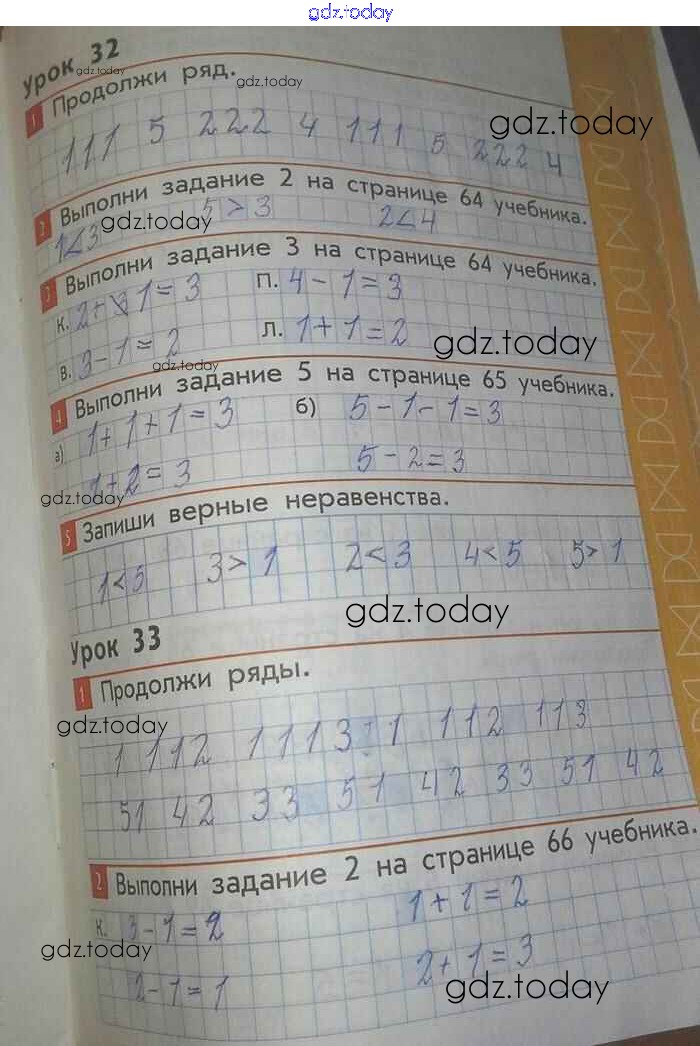 gdz.today
Урок 32
gdz.today
1 Продолжи ряд.
gdz.today
111 5 222 4 111 5 222 4
gdz.today
2 Выполни задание 2 на странице 64 учебника.
1<3 5 > 3 2<4
gdz.today
3 Выполни задание 3 на странице 64 учебника.
К. 2+ 1 = 3 П. 4 - 1 = 3
В. 3-1 = 2 Л. 1 + 1 = 2
gdz.today
gdz.today
4 Выполни задание 5 на странице 65 учебника.
а) 1 + 1 + 1 = 3 б) 5 - 1 - 1 = 3
1+2 = 3 5 - 2 = 3
gdz.today
5 Запиши верные неравенства.
1<5 3 > 1 2 < 3 4 < 5 5 > 1
gdz.today
Урок 33
1 Продолжи ряды.
gdz.today
1 1 1 2 1 1 1 3 1 1 1 1 2 1 1 3
51 42 33 51 42 33 51 42
2 Выполни задание 2 на странице 66 учебника.
К. 3-1=2 1 + 1 = 2
gdz.today
2-1=1 2 + 1 = 3
gdz.today